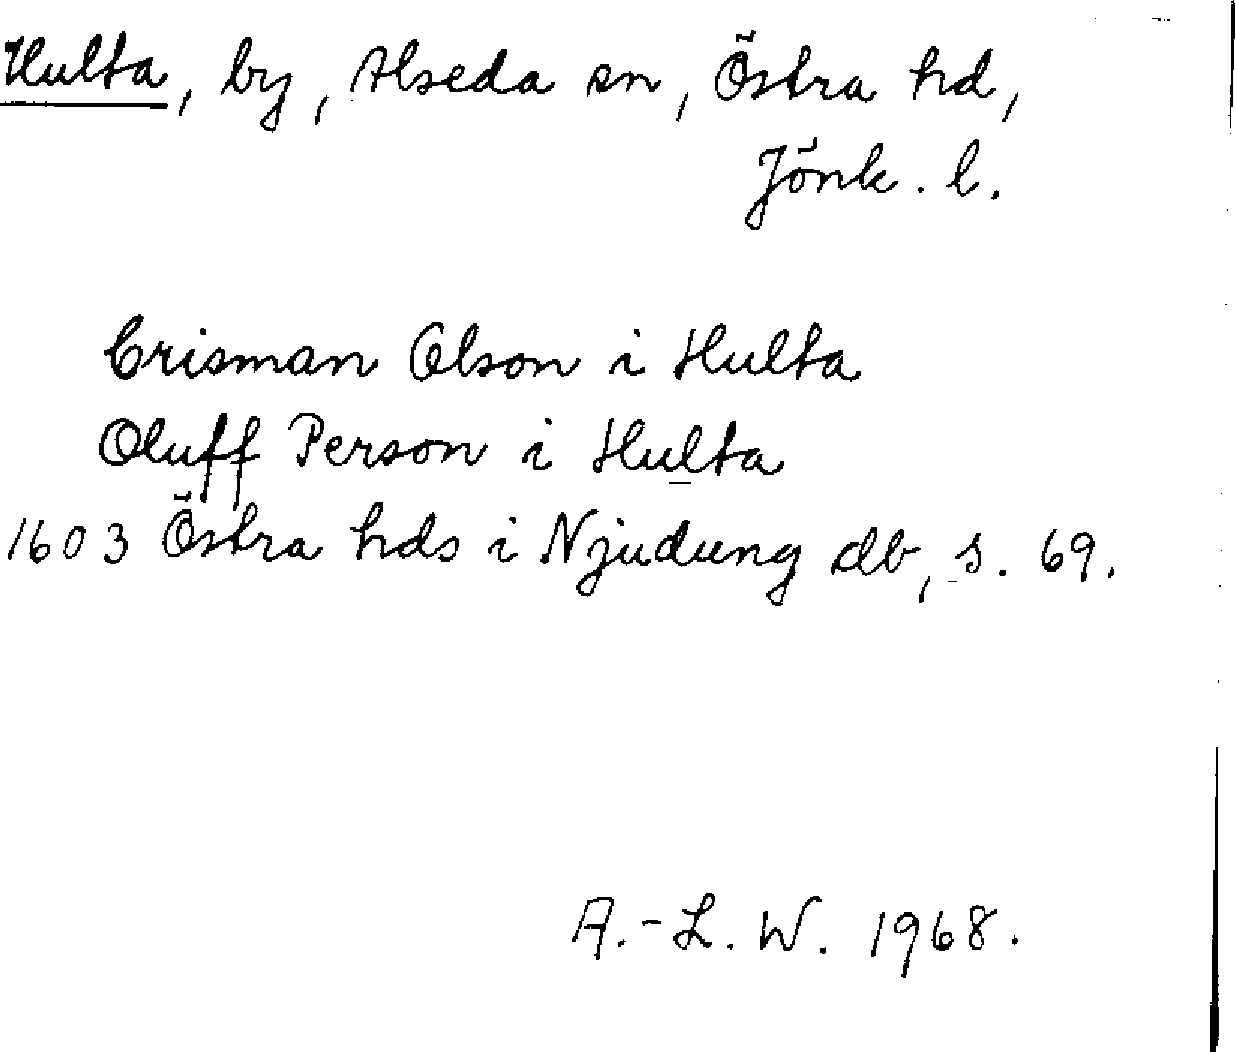 Hulta, by, Alseda sn, Östra hd,
Jönk. l.
Crisman Olson i Hulta
Oluff Person i Hulta
1603 Östra hds i Njudung db, s. 69.
A.-L. W. 1968.